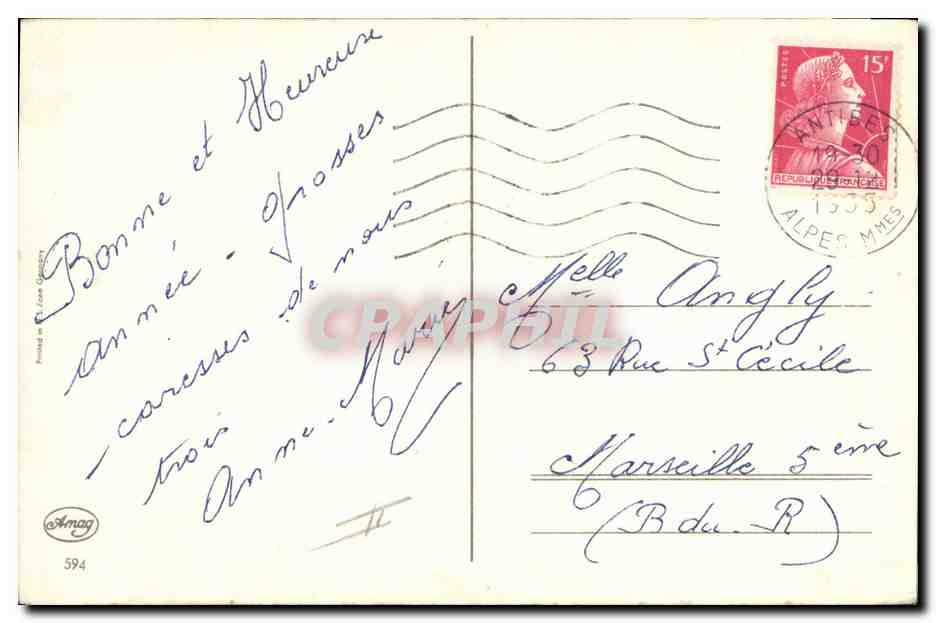 Bonne et Heureuse
année - grosses
caresses de nous
trois
Anne-Marie
Melle Angly
63 Rue St Cécile
Marseille 5ème
(B du. R)
POSTES
15F
REPUBLIQUE FRANÇAISE
ANTIBES
19 30
1955
ALPES MMES
Printed in Zone Germany
Amag
594
CPAPHIL